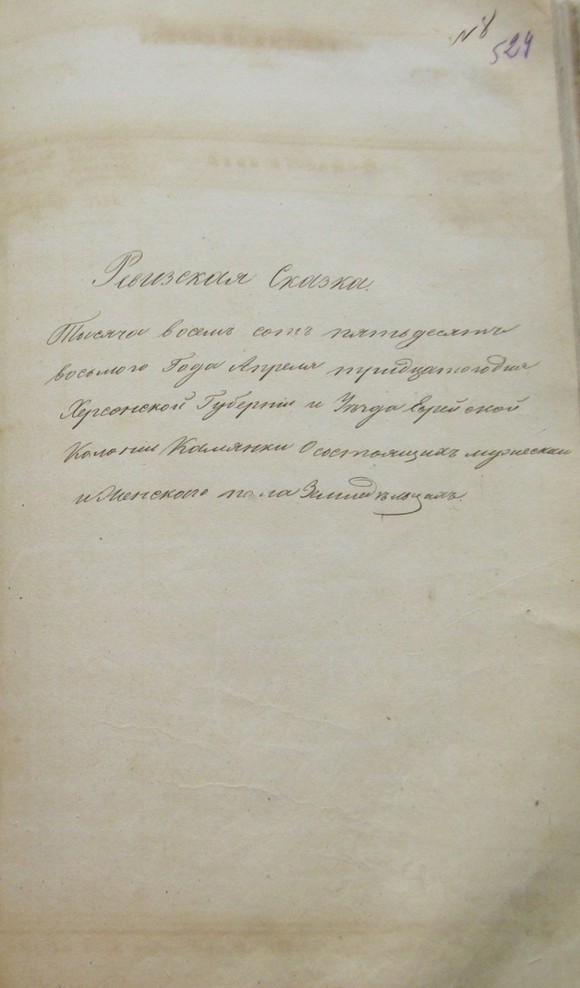 №8
524
Ревизская Сказка.
Тысяча восемь сотъ пятьдесятъ
восьмого Года Апреля тридцатогодня
Херсонской Губерніи и Уѣзда Еврейской
Колоніи Камянки О состоящихъ мужескаи
и Женского пола Земледѣльцахъ.